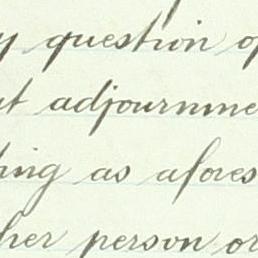 y question of
ut adjournme
hing as afores
her person or